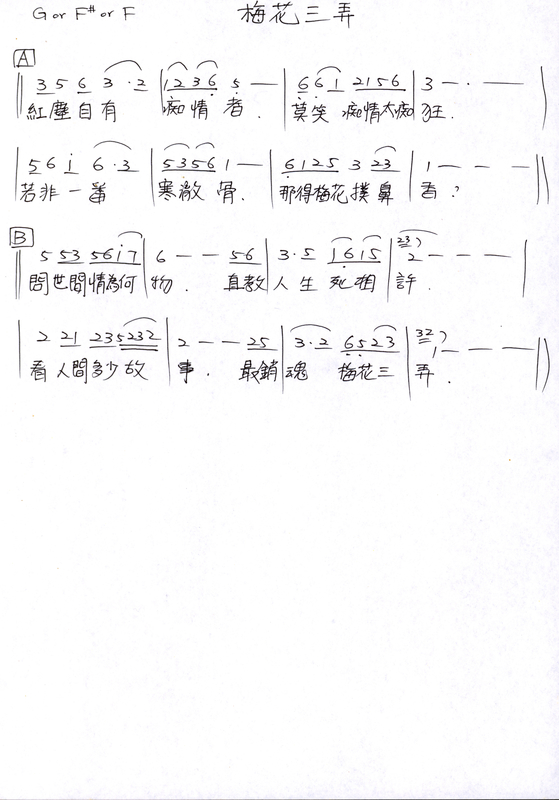 G or F# or F 梅花三弄
A
3 5 6 3 · 2 | 1 2 3 6 5 — | 6 6 1 2 1 5 6 | 3 — · — —
紅塵自有 痴情者. 莫笑痴情太痴狂.
5 6 i 6 · 3 | 5 3 5 6 1 — | 6 1 2 5 3 2 3 | 1 — — —
若非一番 寒澈骨. 那得梅花撲鼻香?
B
5 5 3 5 6 i 7 | 6 — — 5 6 | 3 · 5 1 6 1 5 | 23 2 — — —
問世間情為何物. 直教人生死相許.
2 2 1 2 3 5 2 3 2 | 2 — — 2 5 | 3 · 2 6 5 2 3 | 32 1 — — —
看人間多少故事. 最銷魂梅花三弄.